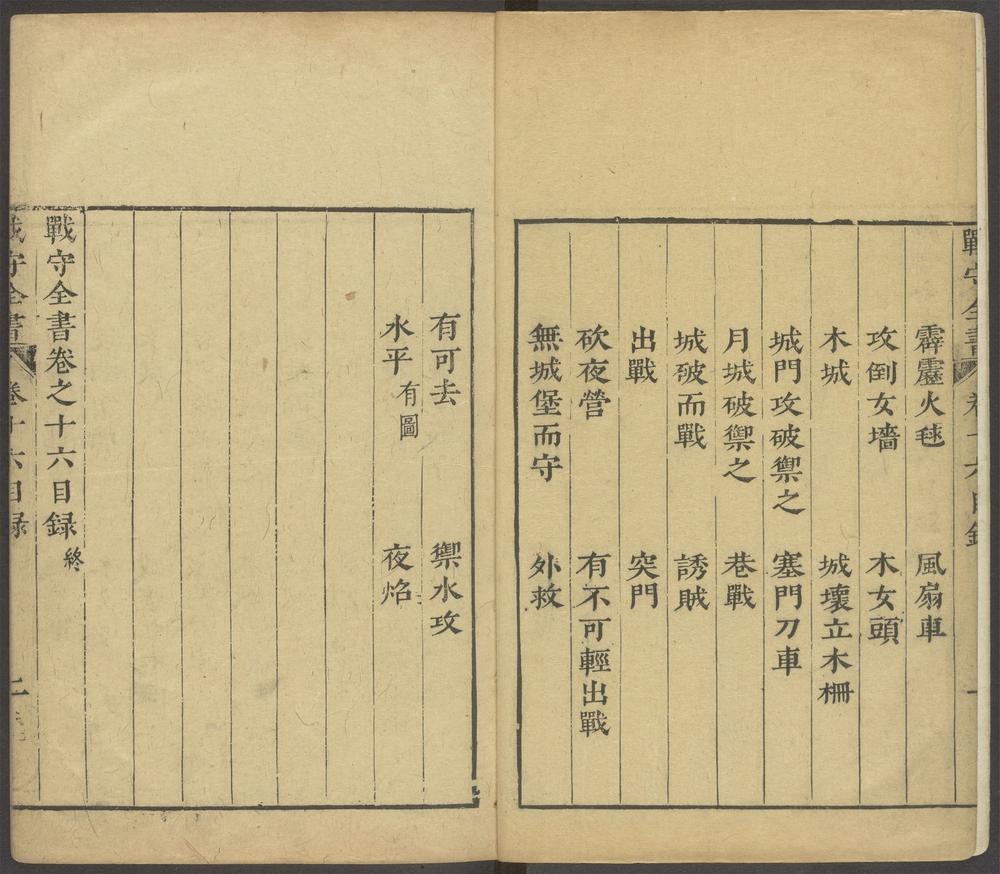 戰守全書 卷十六目錄 一
霹靂火毬 風扇車
攻倒女墻 木女頭
木城 城壞立木柵
城門攻破禦之 塞門刀車
月城破禦之 巷戰
城破而戰 誘賊
出戰 突門
砍夜營 有不可輕出戰
無城堡而守 外救
有可去 禦水攻
水平 有圖 夜焰
戰守全書卷之十六目録 終
戰守全書 卷十六目録